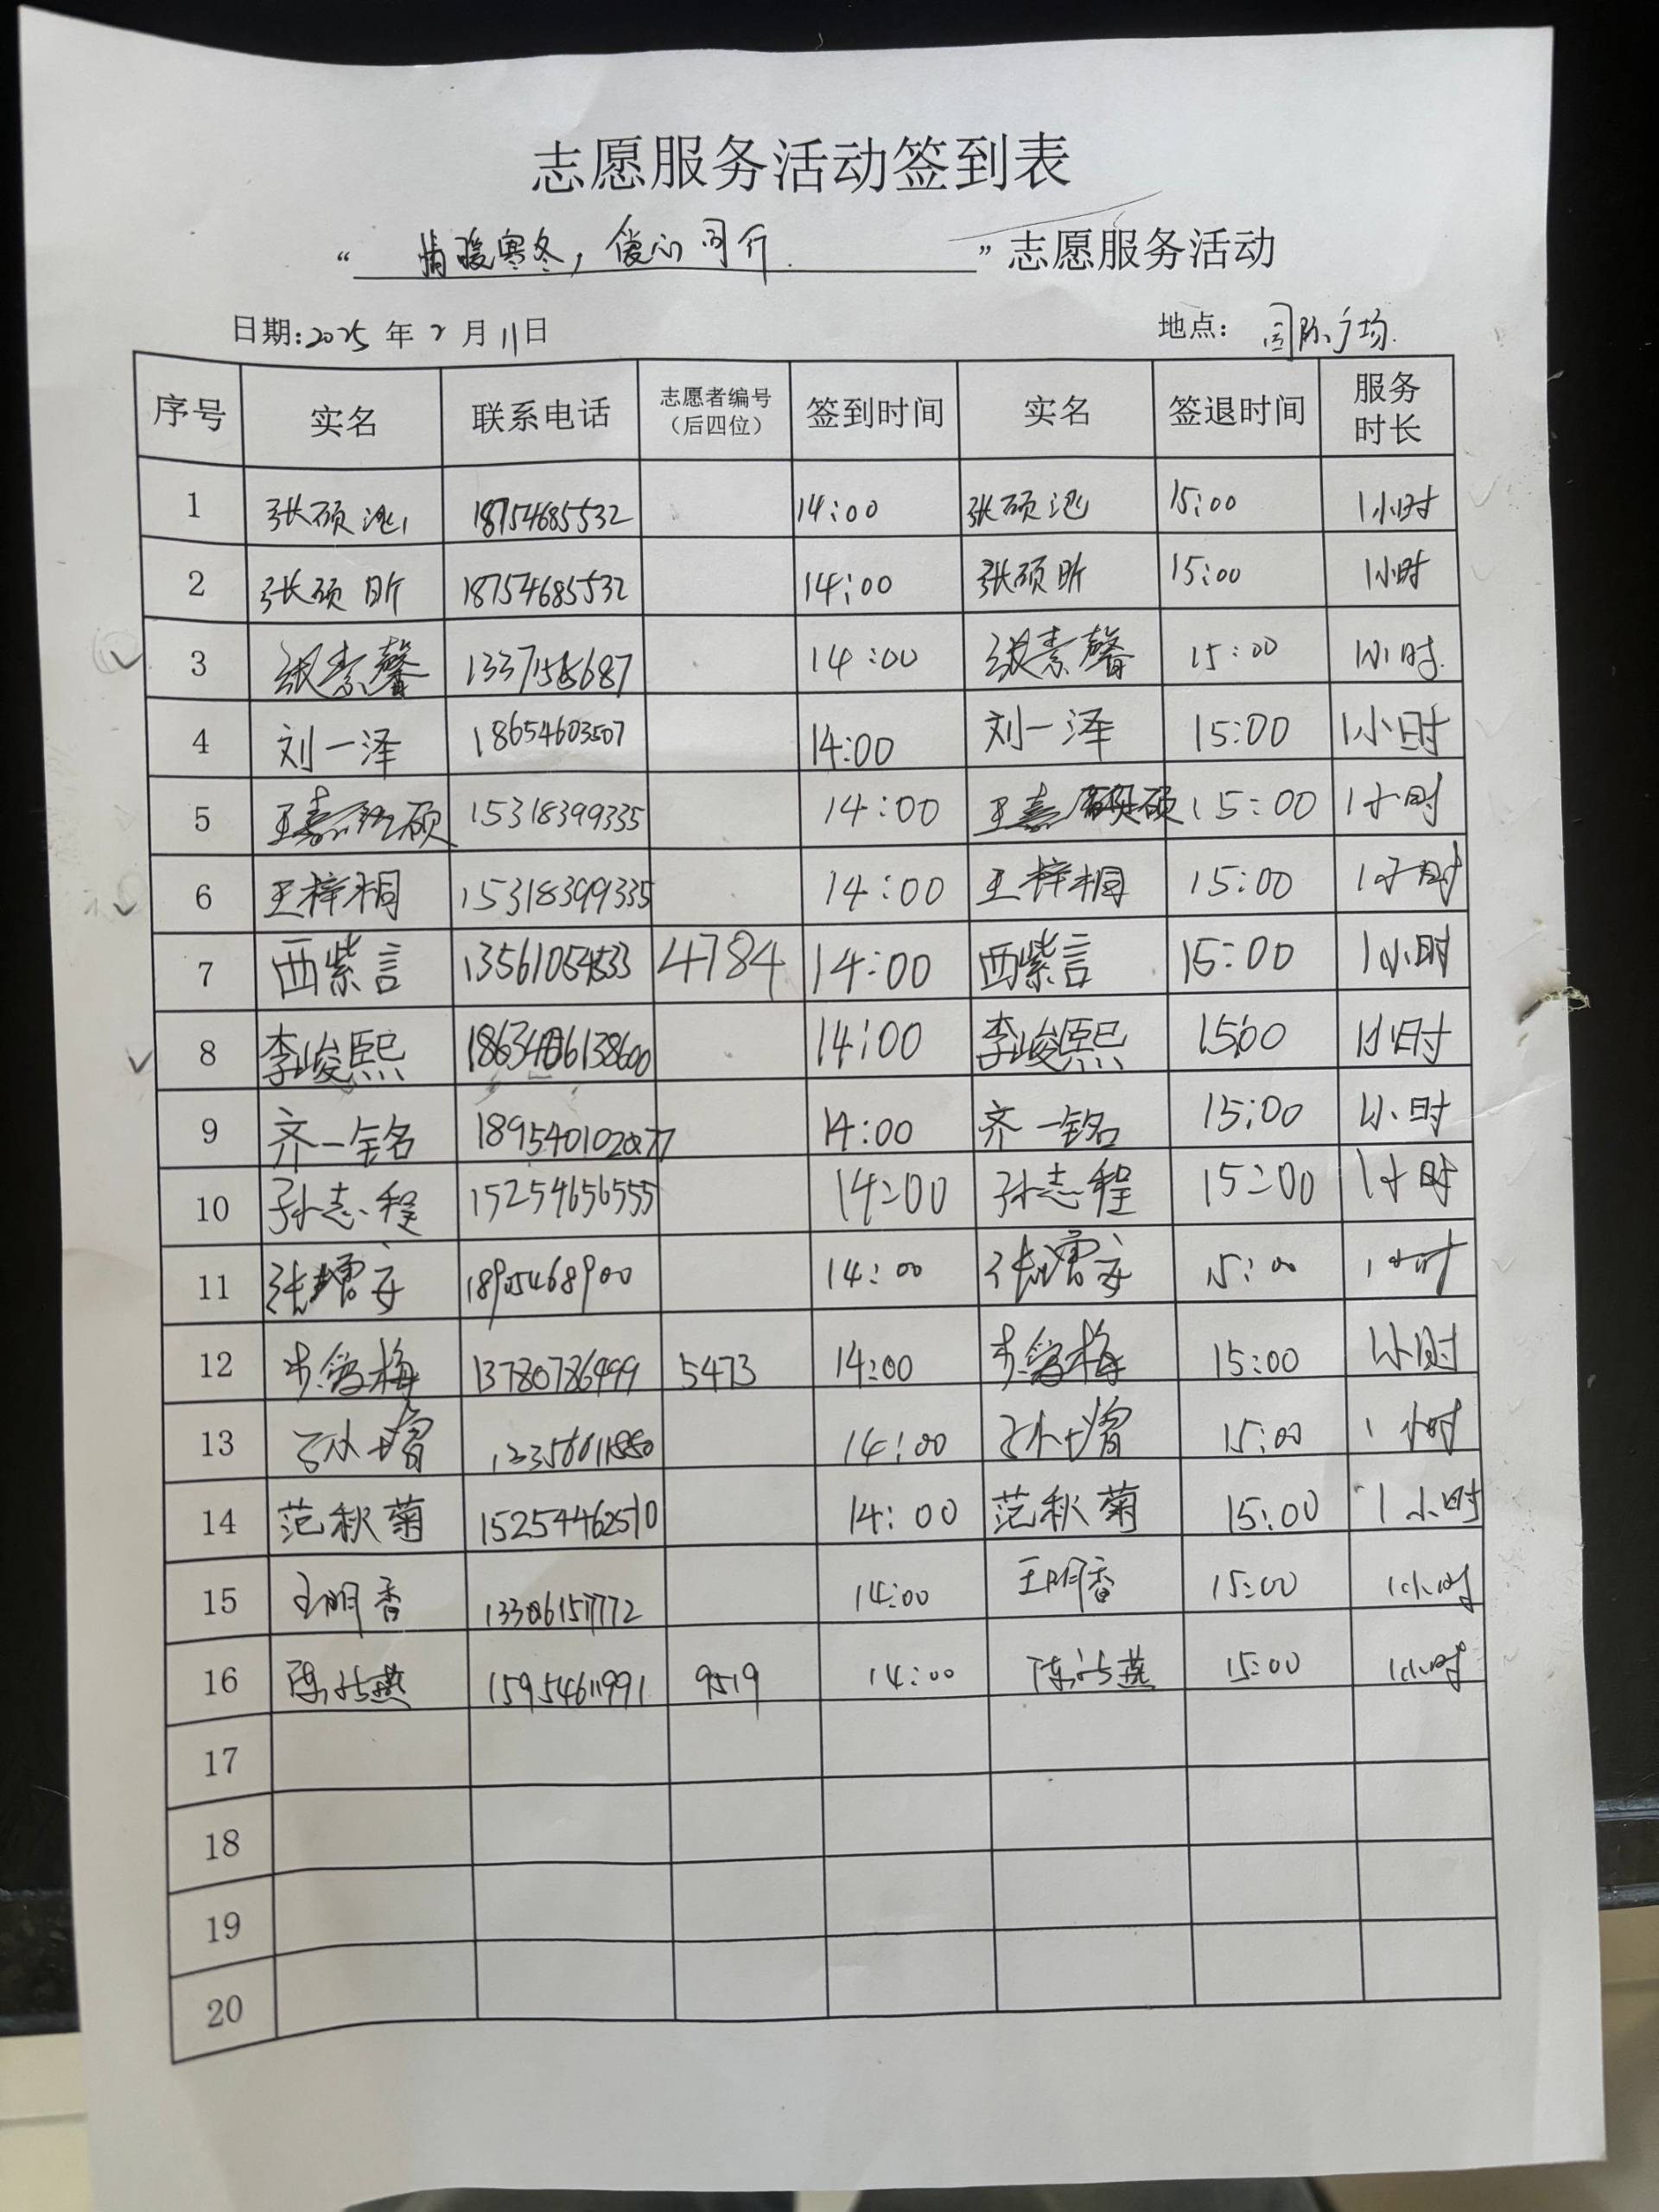 志愿服务活动签到表
“情暖寒冬，爱心同行”志愿服务活动
日期:2025年2月11日 地点：国际广场.
序号 实名 联系电话 志愿者编号（后四位） 签到时间 实名 签退时间 服务时长
1 张硕 18754685532 14:00 张硕 15:00 1小时
2 张硕昕 18754685532 14:00 张硕昕 15:00 1小时
3 素馨 14:00 素馨 15:00 1小时.
4 刘一泽 18654603507 14:00 刘一泽 15:00 1小时
5 王嘉硕 15318399335 14:00 王嘉硕 15:00 1小时
6 王梓桐 15318399335 14:00 王梓桐 15:00 1小时
7 西紫言 4784 14:00 西紫言 15:00 1小时
8 李峻熙 14:00 李峻熙 15:00 1小时
9 齐一铭 14:00 齐一铭 15:00 1小时
10 孙志程 15254656555 14:00 孙志程 15:00 1小时
11 张 18905468900 14:00 张 15:00 1小时
12 梅 13780786999 5473 14:00 梅 15:00 1小时
13 孙增 14:00 孙增 15:00 1小时
14 范秋菊 15254462510 14:00 范秋菊 15:00 1小时
15 王明香 14:00 王明香 15:00 1小时
16 陈燕 15954611991 9519 14:00 陈燕 15:00 1小时
17
18
19
20